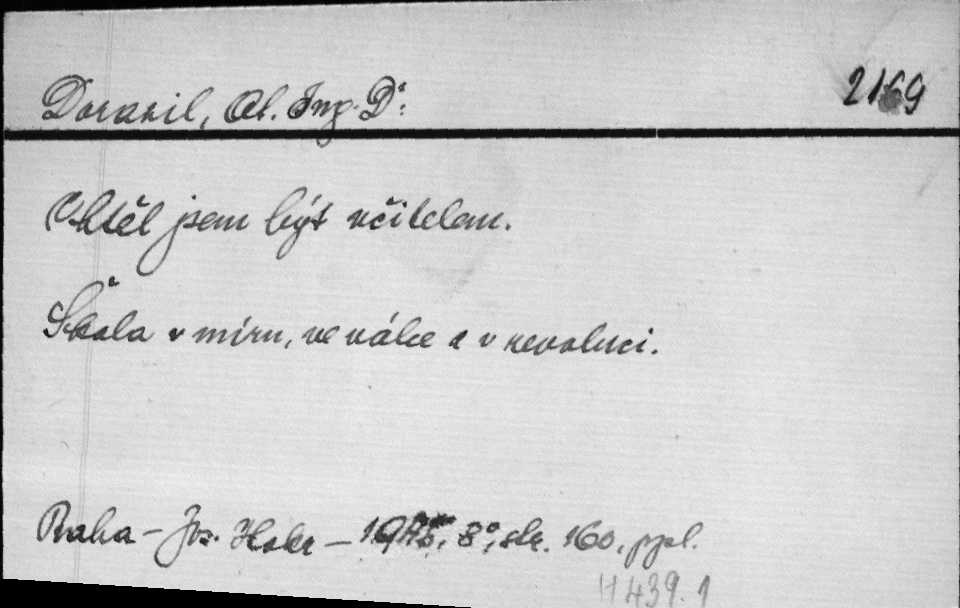 Dorazil, Ot. Ing. Dr. 2169
Chtěl jsem být učitelem.
Škola v míru, ve válce a v revoluci.
Praha - Jos. Hokr - 1935, 8°, str. 160, ppl.
H 439.1